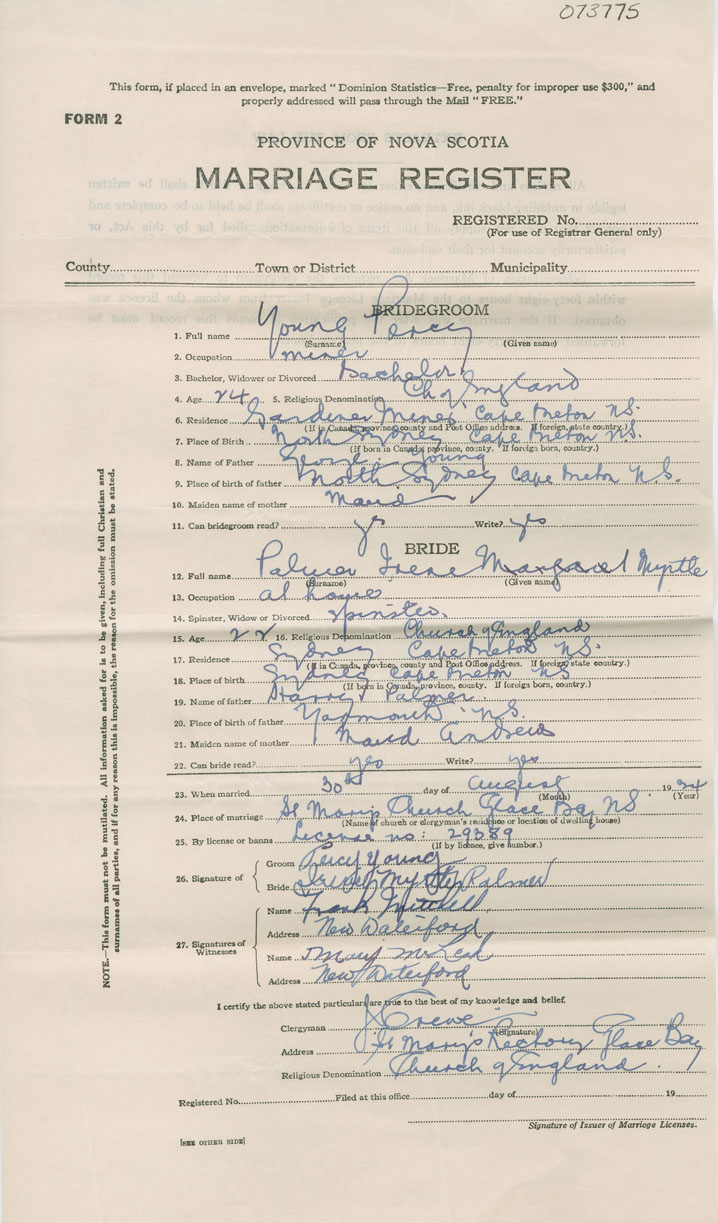 073775
This form, if placed in an envelope, marked "Dominion Statistics—Free, penalty for improper use $300," and
properly addressed will pass through the Mail "FREE."
FORM 2
PROVINCE OF NOVA SCOTIA
MARRIAGE REGISTER
REGISTERED No.
(For use of Registrar General only)
County Town or District Municipality
BRIDEGROOM
1. Full name Young Percy
(Surname) (Given name)
2. Occupation miner
3. Bachelor, Widower or Divorced Bachelor
4. Age 24 5. Religious Denomination Ch of England
6. Residence Gardiner Mines Cape Breton N.S.
(If in Canada, province, county and Post Office address. If foreign, state country.)
7. Place of Birth North Sydney Cape Breton N.S.
(If born in Canada, province, county. If foreign born, country.)
8. Name of Father George Young
9. Place of birth of father North Sydney Cape Breton N.S.
10. Maiden name of mother Maud
11. Can bridegroom read? yes Write? yes
BRIDE
12. Full name Palmer Irene Margaret Myrtle
(Surname) (Given name)
13. Occupation at home
14. Spinster, Widow or Divorced Spinster.
15. Age 22 16. Religious Denomination Church of England
17. Residence Sydney Cape Breton N.S.
(If in Canada, province, county and Post Office address. If foreign, state country.)
18. Place of birth Sydney Cape Breton NS
(If born in Canada, province, county. If foreign born, country.)
19. Name of father Harry Palmer
20. Place of birth of father Yarmouth N.S.
21. Maiden name of mother Maud Andrews
22. Can bride read? yes Write? yes
23. When married 30th day of August 1934
(Month) (Year)
24. Place of marriage St Mary's Church Glace Bay NS
(Name of church or clergyman's residence or location of dwelling house)
25. By license or banns License no: 29389
(If by licence, give number.)
26. Signature of
Groom Percy Young
Bride Irene Myrtle Palmer
27. Signatures of Witnesses
Name Frank Mitchell
Address New Waterford
Name Mary McLean
Address New Waterford
I certify the above stated particulars are true to the best of my knowledge and belief.
Clergyman J Crewe
(Signature)
Address St Mary's Rectory Glace Bay
Religious Denomination Church of England.
Registered No. Filed at this office day of 19
Signature of Issuer of Marriage Licenses.
[SEE OTHER SIDE]
NOTE.—This form must not be mutilated. All information asked for is to be given, including full Christian and
surnames of all parties, and if for any reason this is impossible, the reason for the omission must be stated.